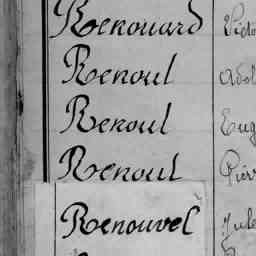 Renouard Victo
Renoul Adol
Renoul Eug
Renoul Pierr
Renouvel Jule